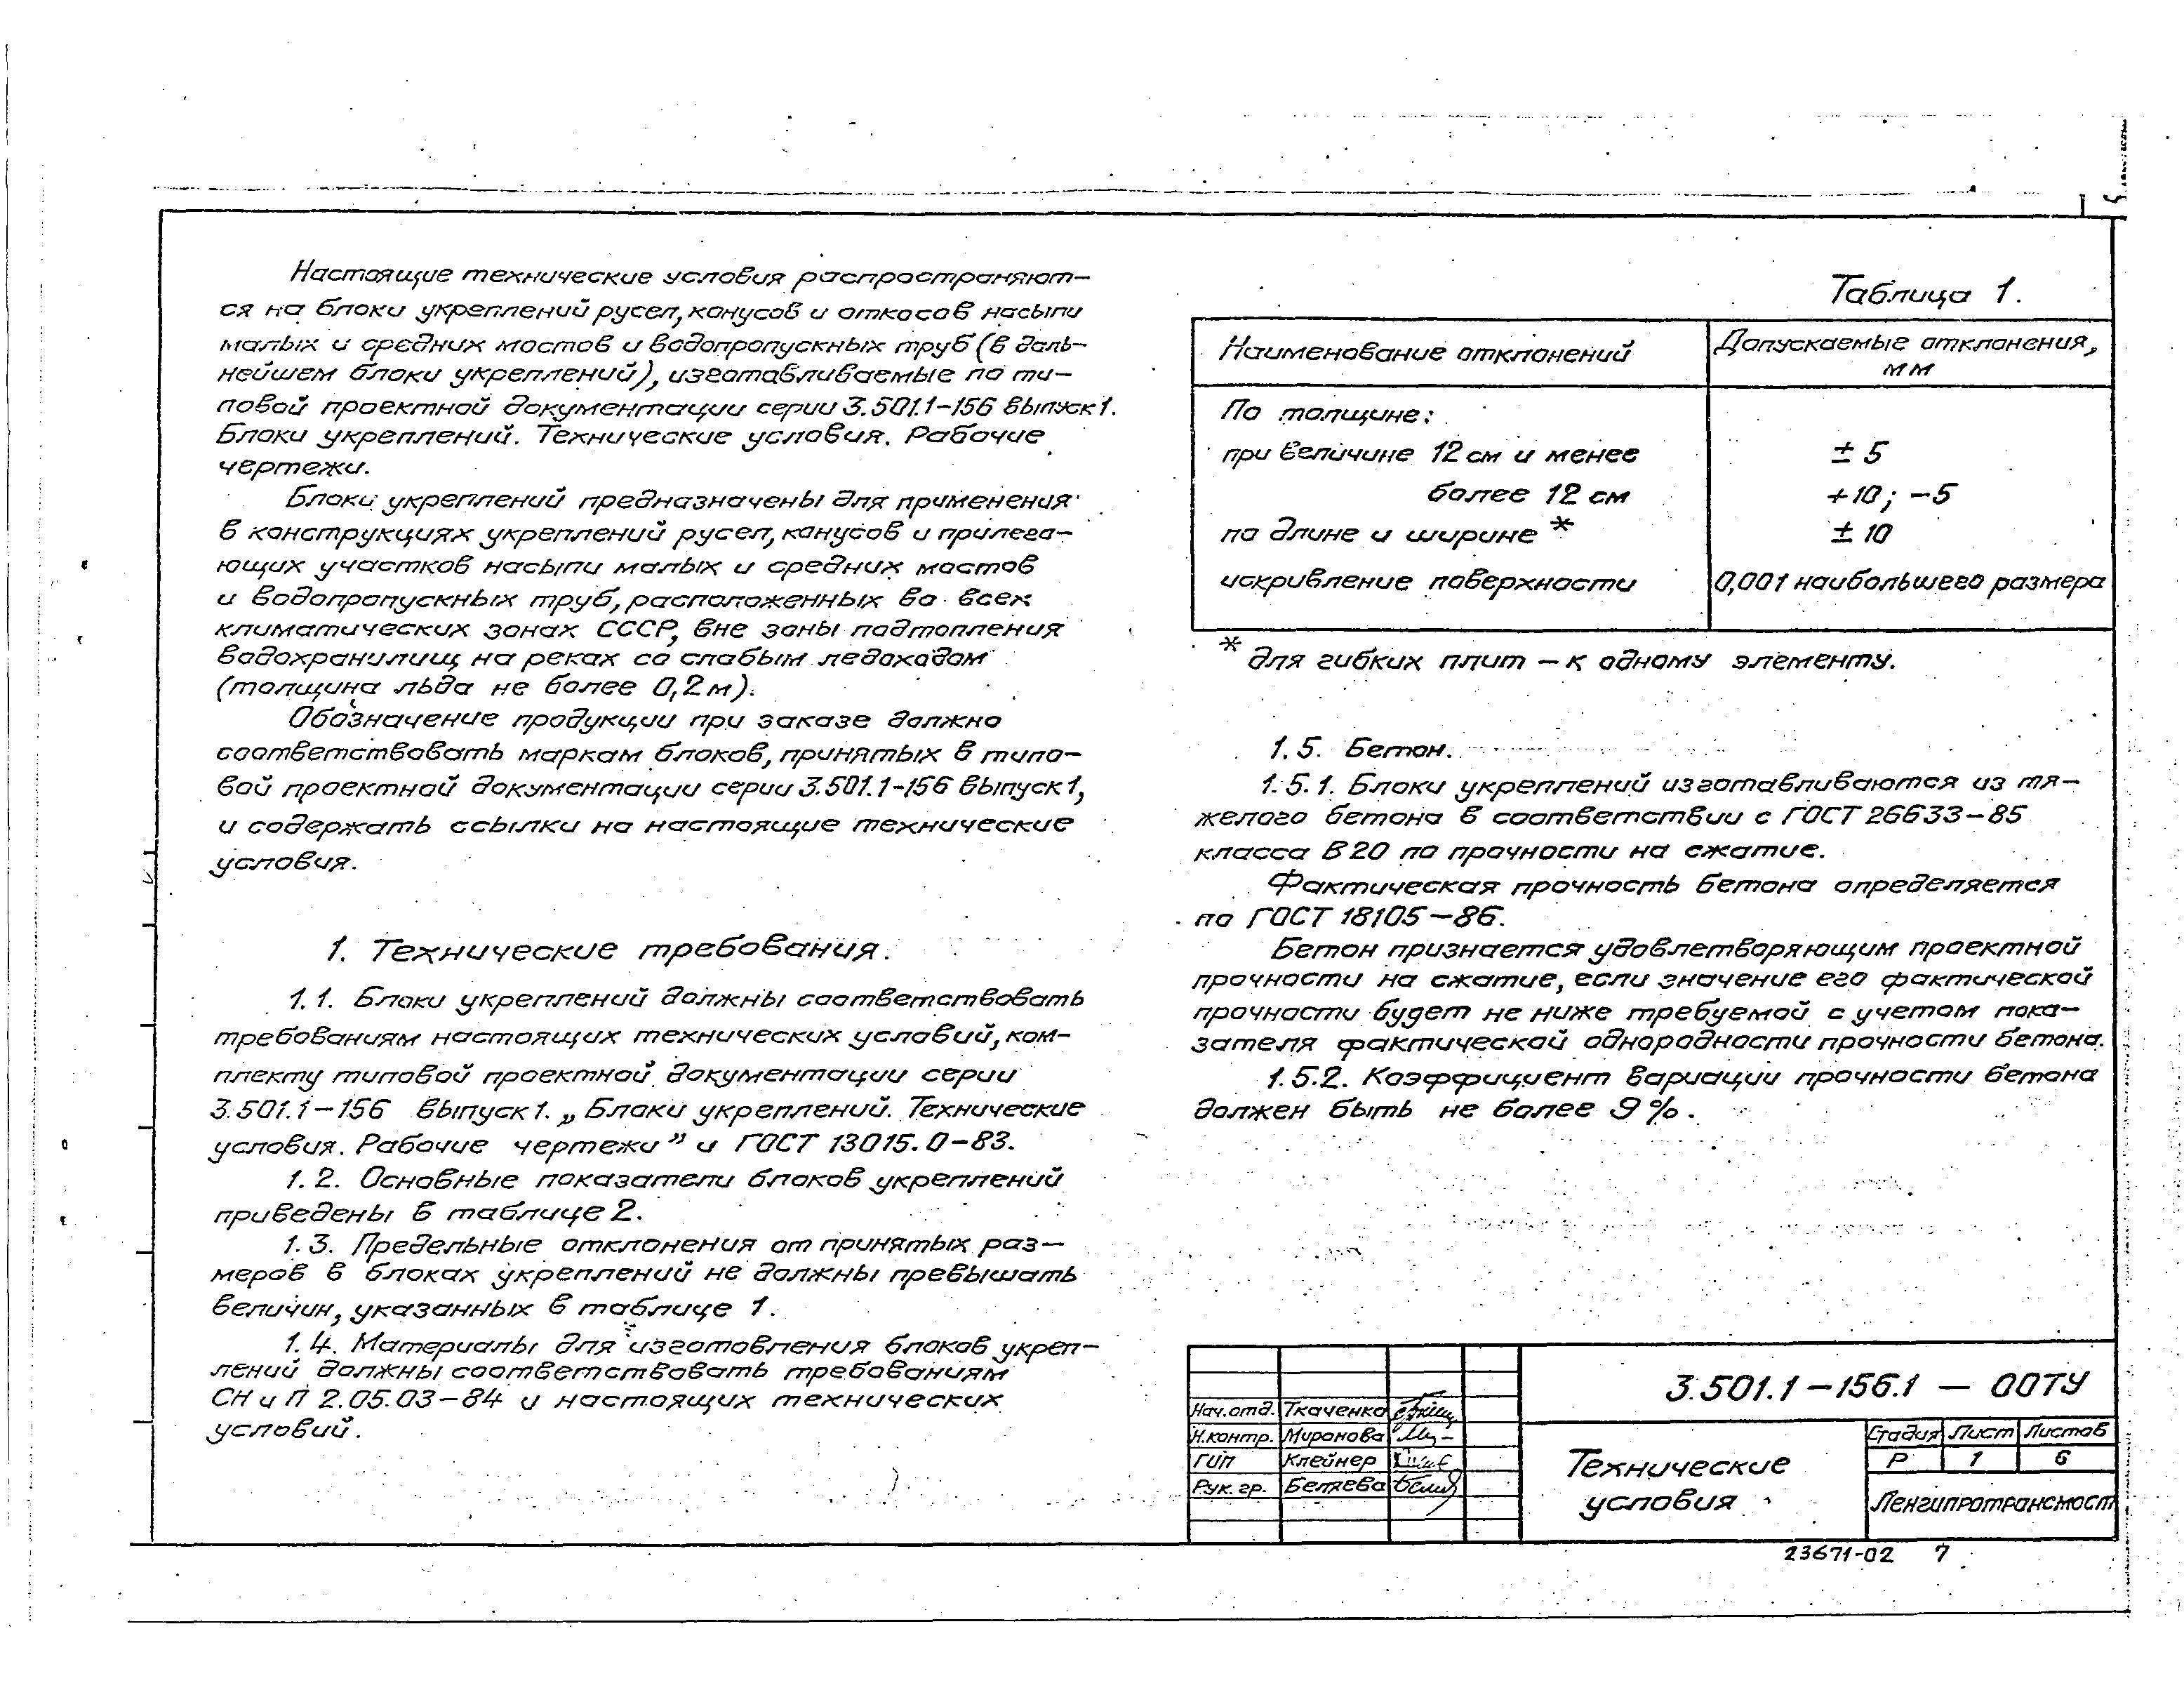 Настоящие технические условия распространяют-
ся на блоки укреплений русел, конусов и откосов насыпи
малых и средних мостов и водопропускных труб (в даль-
нейшем блоки укреплений), изготавливаемые по ти-
повой проектной документации серии 3.501.1-156 выпуск 1.
Блоки укреплений. Технические условия. Рабочие
чертежи.
Блоки укреплений предназначены для применения
в конструкциях укреплений русел, конусов и прилега-
ющих участков насыпи малых и средних мостов
и водопропускных труб, расположенных во всех
климатических зонах СССР, вне зоны подтопления
водохранилищ на реках со слабым ледоходом
(толщина льда не более 0,2 м).
Обозначение продукции при заказе должно
соответствовать маркам блоков, принятых в типо-
вой проектной документации серии 3.501.1-156 выпуск 1,
и содержать ссылки на настоящие технические
условия.
1. Технические требования.
1.1. Блоки укреплений должны соответствовать
требованиям настоящих технических условий, ком-
плекту типовой проектной документации серии
3.501.1-156 выпуск 1. „Блоки укреплений. Технические
условия. Рабочие чертежи" и ГОСТ 13015.0-83.
1.2. Основные показатели блоков укреплений
приведены в таблице 2.
1.3. Предельные отклонения от принятых раз-
меров в блоках укреплений не должны превышать
величин, указанных в таблице 1.
1.4. Материалы для изготовления блоков укреп-
лений должны соответствовать требованиям
СН и П 2.05.03-84 и настоящих технических
условий.
Таблица 1.
Наименование отклонений Допускаемые отклонения,
мм
По толщине:
при величине 12 см и менее ± 5
более 12 см +10; -5
по длине и ширине * ± 10
искривление поверхности 0,001 наибольшего размера
* для гибких плит - к одному элементу.
1.5. Бетон.
1.5.1. Блоки укреплений изготавливаются из тя-
желого бетона в соответствии с ГОСТ 26633-85
класса В20 по прочности на сжатие.
Фактическая прочность бетона определяется
по ГОСТ 18105-86.
Бетон признается удовлетворяющим проектной
прочности на сжатие, если значение его фактической
прочности будет не ниже требуемой с учетом пока-
зателя фактической однородности прочности бетона.
1.5.2. Коэффициент вариации прочности бетона
должен быть не более 9%.
3.501.1-156.1 - 00ТУ
Нач.отд. Ткаченко
Н.контр. Миронова
ГИП Клейнер
Рук. гр. Беляева
Технические
условия
Стадия Лист Листов
Р 1 6
Ленгипротрансмост
23671-02 7